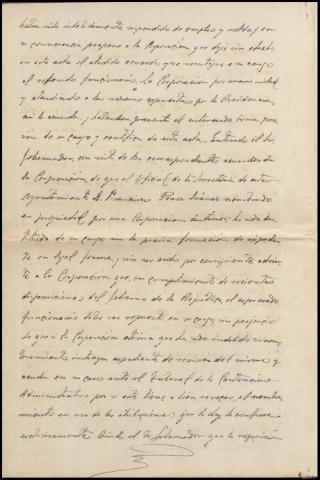 haber sido indebidamente suspendido de empleo y sueldo, en
su consecuencia propone a la Corporación que deje sin efecto
en este acto el aludido acuerdo que reintegre a su cargo
al referido funcionario. La Corporación por unanimidad
y atendiendo a las razones expuestas por la Presidencia,
así lo acuerda, y hallandose presente el interesado toma pose-
sión de su cargo y certifica de esta acta. Entiende el Sr.
Gobernador, en vista de los correspondientes acuerdos de
la Corporación, de que el Oficial de la Secretaria de este
Ayuntamiento D. Francisco Perez Suarez nombrado
en propiedad por una Corporacion anterior, ha sido des-
tituido de su cargo sin la previa formación de expedien-
te en legal forma, y sin ser oido por consiguiente advier-
te a la Corporacion que, en cumplimiento de recientes
disposiciones del Gobierno de la República, el expresado
funcionario debe ser repuesto en su cargo, sin perjuicio
de que si la Corporación estima que ha sido indebido su nom-
bramiento instruya expediente de revisión del mismo y
acuda en su caso ante el Tribunal de lo Contencioso
Administrativo por si este tiene a bien revocar el nombra-
miento en uso de las atribuciones que la ley le confiere
exclusivamente. Añade el Sr. Gobernador que la reposición